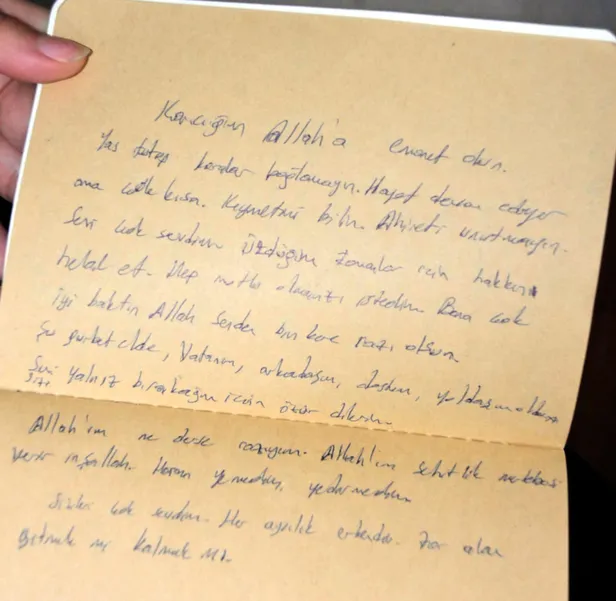 Karıcığım Allah'a emanet olun.
Yas tutup karalar bağlamayın. Hayat devam ediyor
ama çok kısa. Kıymetini bilin. Ahireti unutmayın.
Seni çok sevdim. Üzdüğüm zamanlar için hakkını
helal et. Hep mutlu olmanızı istedim. Bana çok
iyi baktın Allah senden bin kere razı olsun
Şu gurbet elde, Vatanım, arkadaşım, dostum, yoldaşım oldun.
Seni yalnız bırakacağım için özür dilerim.
sizi
Allah'ım ne derse razıyım. Allah'ım şehitlik mertebesi
verir inşallah. Haram yemedim, yedirmedim.
Sizleri çok sevdim. Her ayrılık erkendir. Zor olan
gitmek mi kalmak mı.